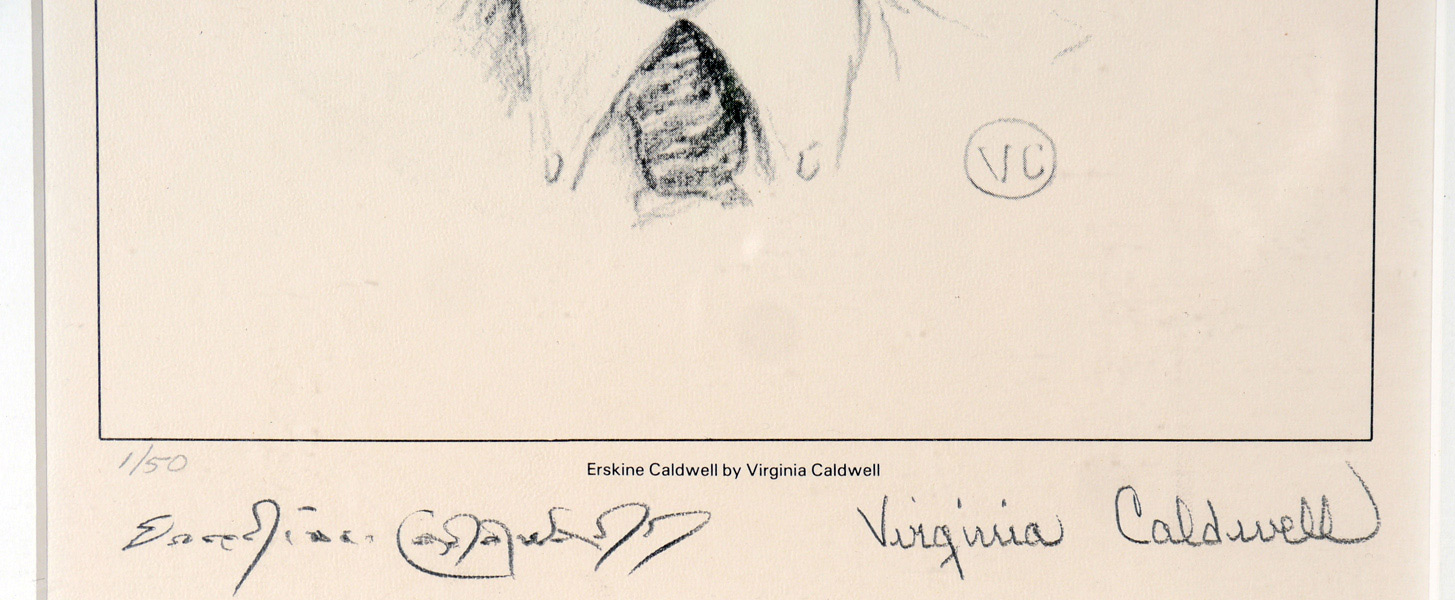 VC
1/50
Erskine Caldwell by Virginia Caldwell
Erskine Caldwell Virginia Caldwell